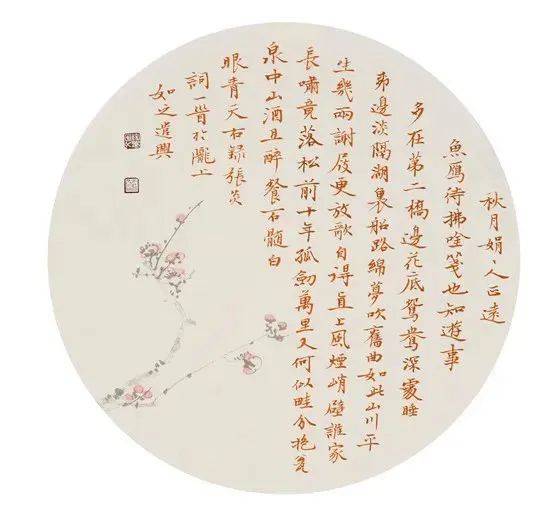 秋月娟々人正遠
魚雁待拂吟箋也知遊事
多在第二橋邊花底鴛鴦深處睡
邊淡隔湖裏船路綿夢吹舊曲如此山川平
生幾兩謝屐更放歌自得直上風煙峭壁誰家
長嘯竟落松前十年孤劍萬里又何似畦分抱瓮
泉中山酒且醉餐石髓白
眼青天右錄張炎
詞一首於隴上
如之遣興